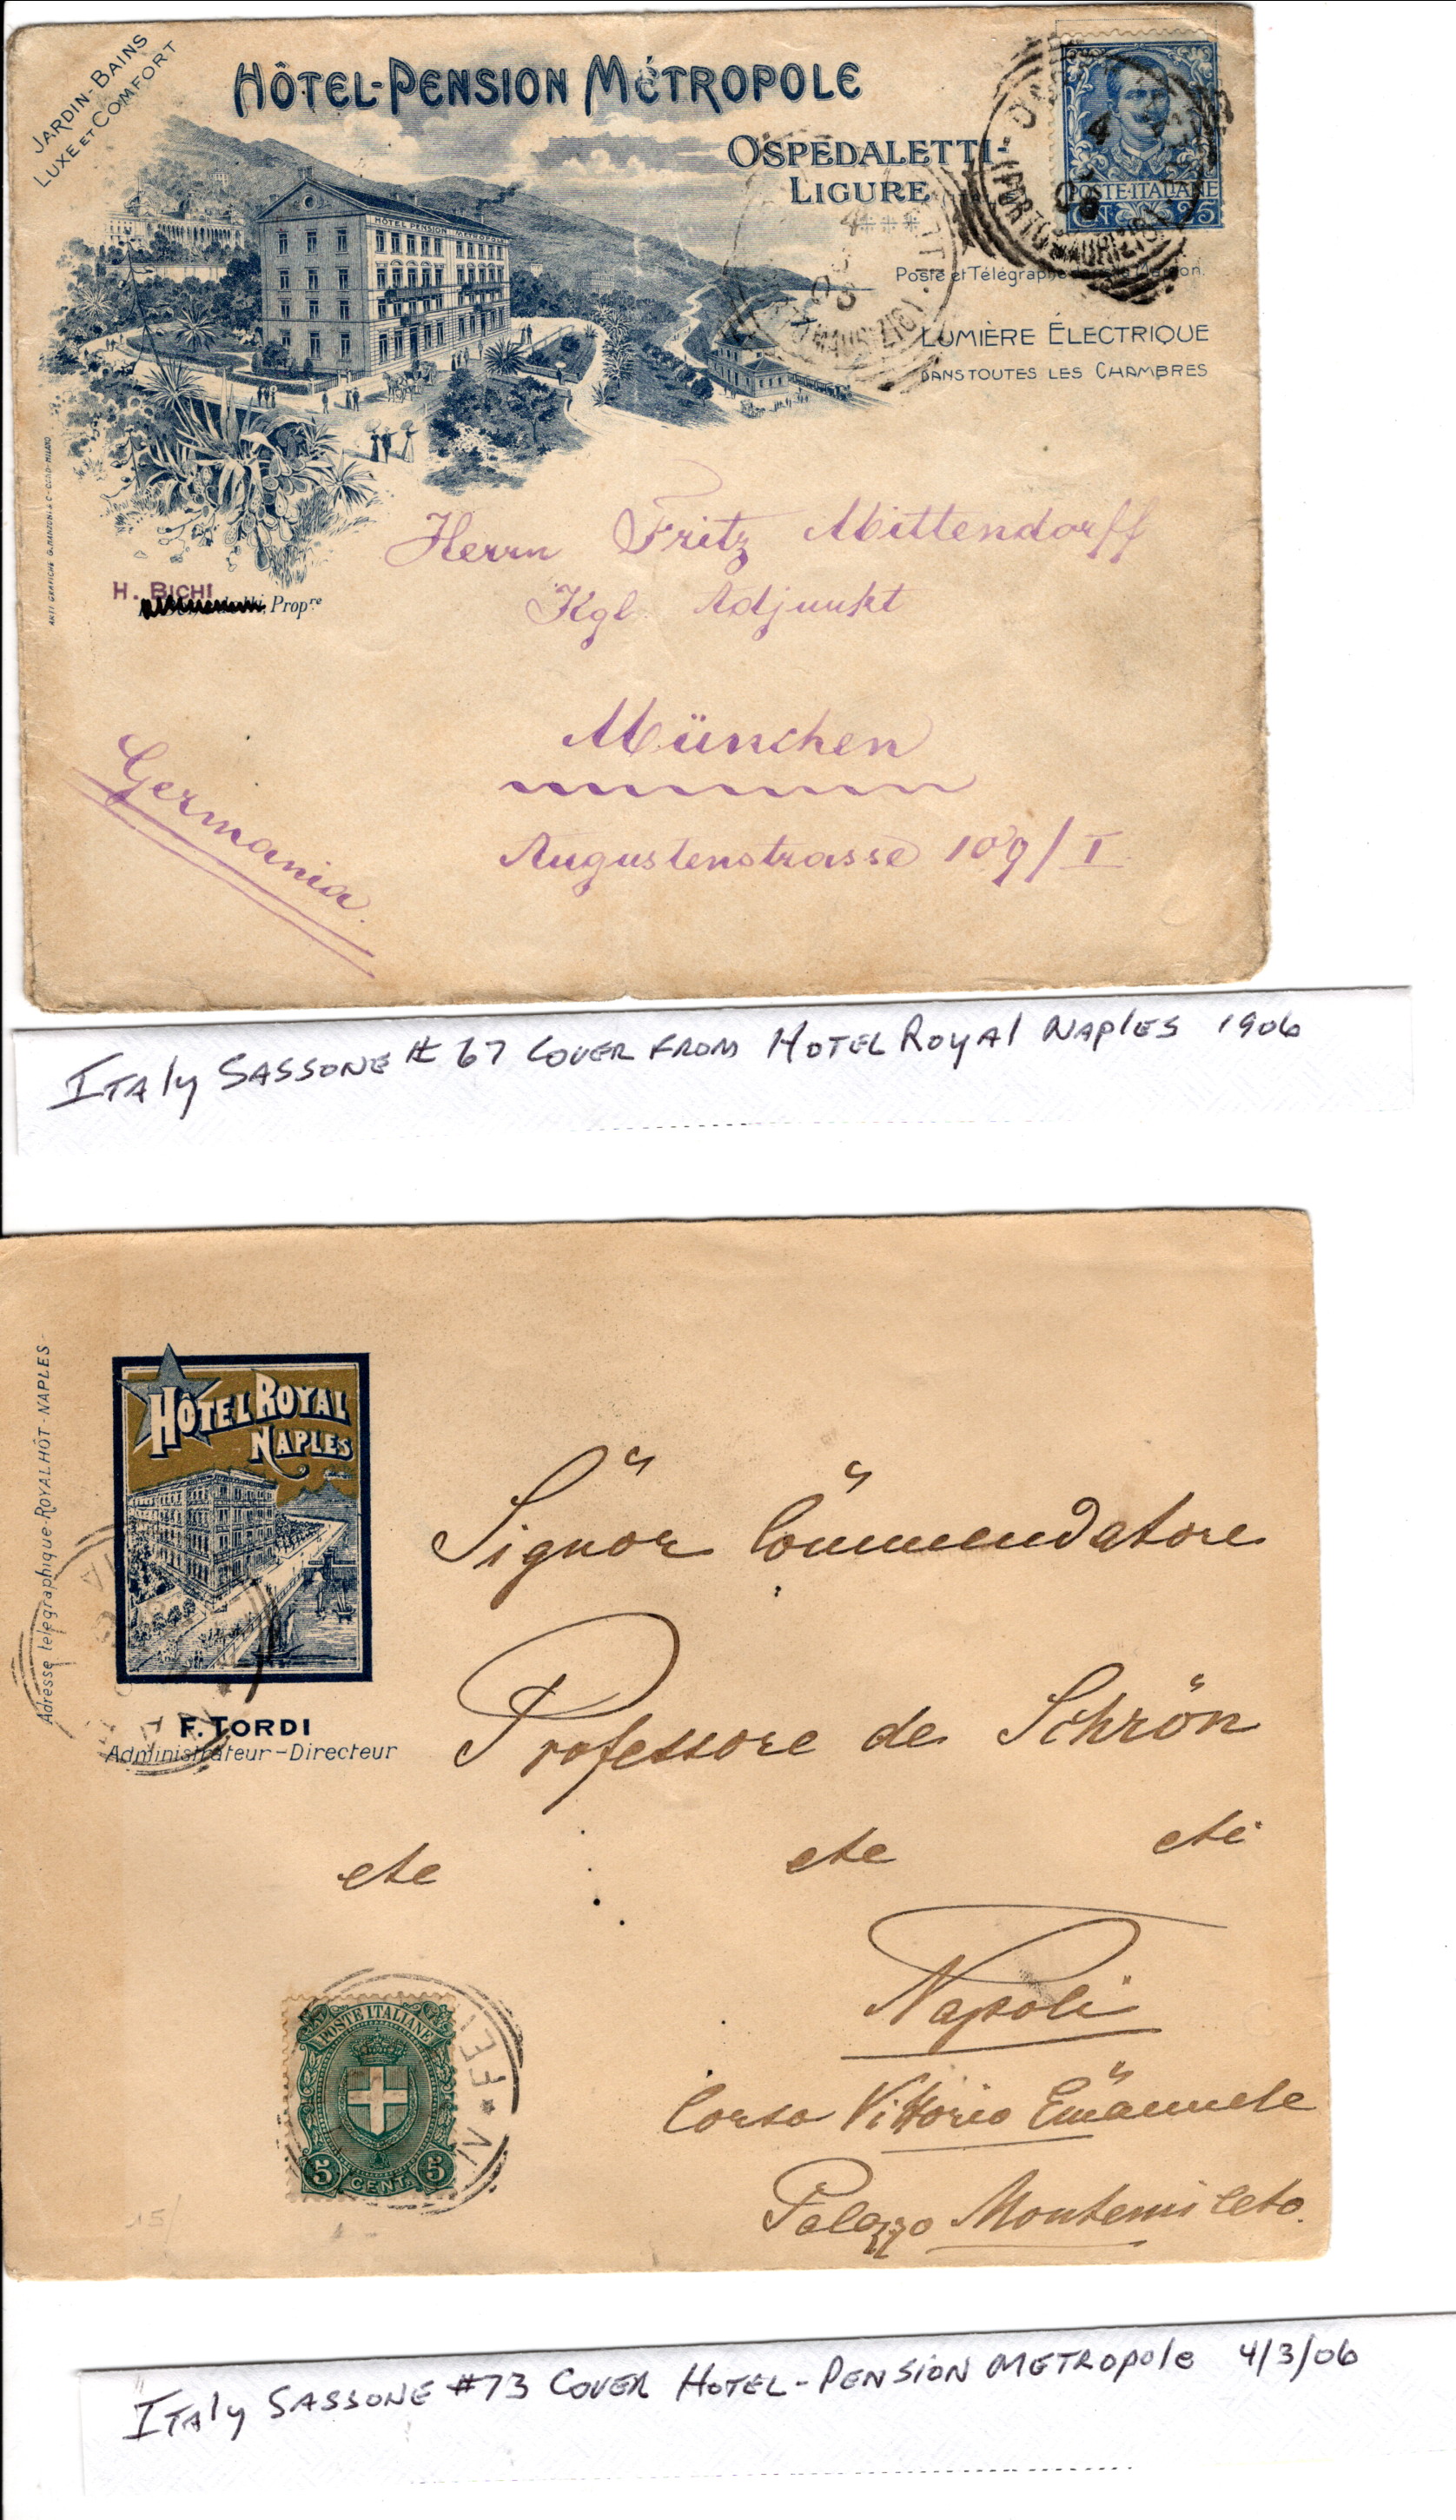 JARDIN-BAINS
LUXE ET COMFORT
HÔTEL-PENSION MÉTROPOLE
OSPEDALETTI-
LIGURE
HÔTEL PENSION METROPOLE
POSTE ITALIANE
CEN 25
4
PORTO MAURIZIO
4
Poste et Télégraphe Maison.
LUMIÈRE ÉLECTRIQUE
DANS TOUTES LES CHAMBRES
ARTI GRAFICHE G. MANZONI & C. MILANO
H. BICHI
Propre
Herrn Fritz Mittendorff
Kgl. Adjunkt
München
Augustenstrasse 109/I
Germania
ITALY SASSONE # 67 COVER FROM HOTEL ROYAL NAPLES 1906
Adresse telegraphique-ROYALHÔT-NAPLES
HÔTEL ROYAL
NAPLES
F. TORDI
Administrateur-Directeur
Signor Commendatore
Professore de Schrön
etc etc etc
Napoli
Corso Vittorio Emanuele
Palazzo Montemileto.
POSTE ITALIANE
5 CENT. 5
15/
ITALY SASSONE #73 COVER HOTEL-PENSION METROPOLE 4/3/06